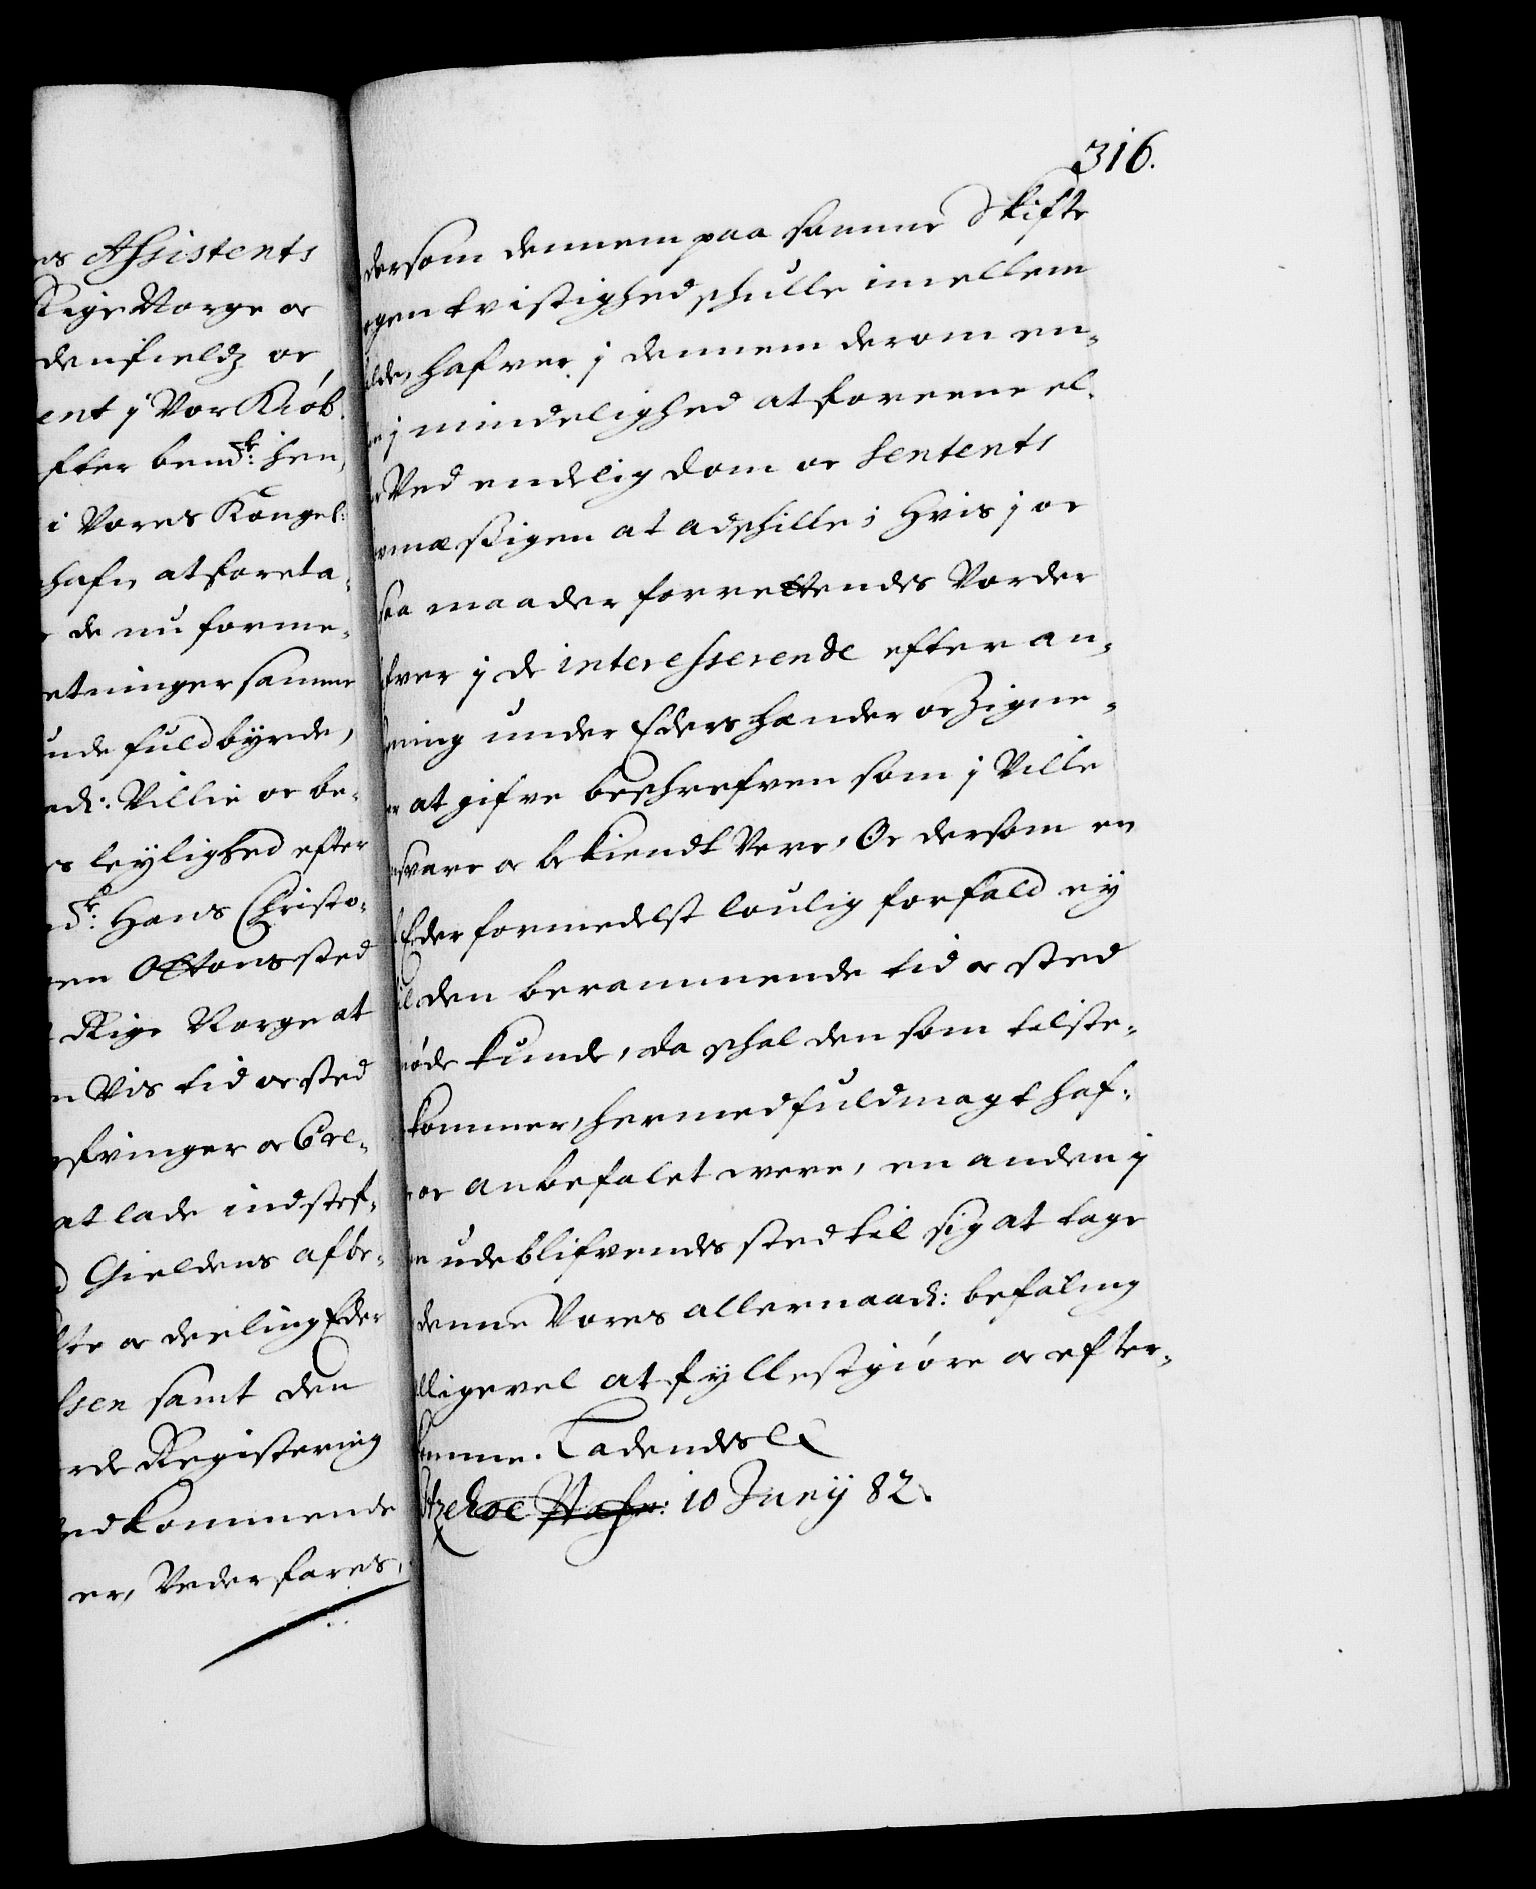 es Assistents
Rige Norge oc
denfieldz oc
ent j Vor Kiøb-
fter bem.te: hen,
i Vores Kongel:
hafn, at foreta-
de nu forme-
etninger samme
unde fuldbyrde,
ad: Villie oc be-
es leylighed efter
Hans Christo-
en Ottensted
Rige Norge at
n Vis tid oc sted
fvinger oc Cre-
at lade indstef-
d Gieldens afbe-
fte oc deeling Eder
sen samt den
rde Registering
edkommende
er, Vederfares,
316.
dersom dennem paa samme Skifte
ogen tvistighed schulle imellem
alde, hafver j dennem derom en-
en j mindelighed at foreene el-
er Ved endelig dom oc Sentents
ovmæssigen at adschille; Hvis j oc
saa maader forrettendes Vorder
fver j de interesserende efter an-
ning under Eders hænder oc Zigne-
er at gifve beschrefven som j Ville
nsvare oc bekiendt Vere, Oc dersom en
f Eder formedelst loulig forfald ey
il den berammende tid oc sted
møde kunde, da schal den som tilste-
kommer, hermed fuldmagt haf-
e oc anbefalet were, en anden j
en udeblifvendes sted til sig at tage
denne Vores allernaad: befaling
lligevel at fyllestgiøre oc efter-
komme. Ladendes &c
Itzehoe Hafn: 10 Juny 82.